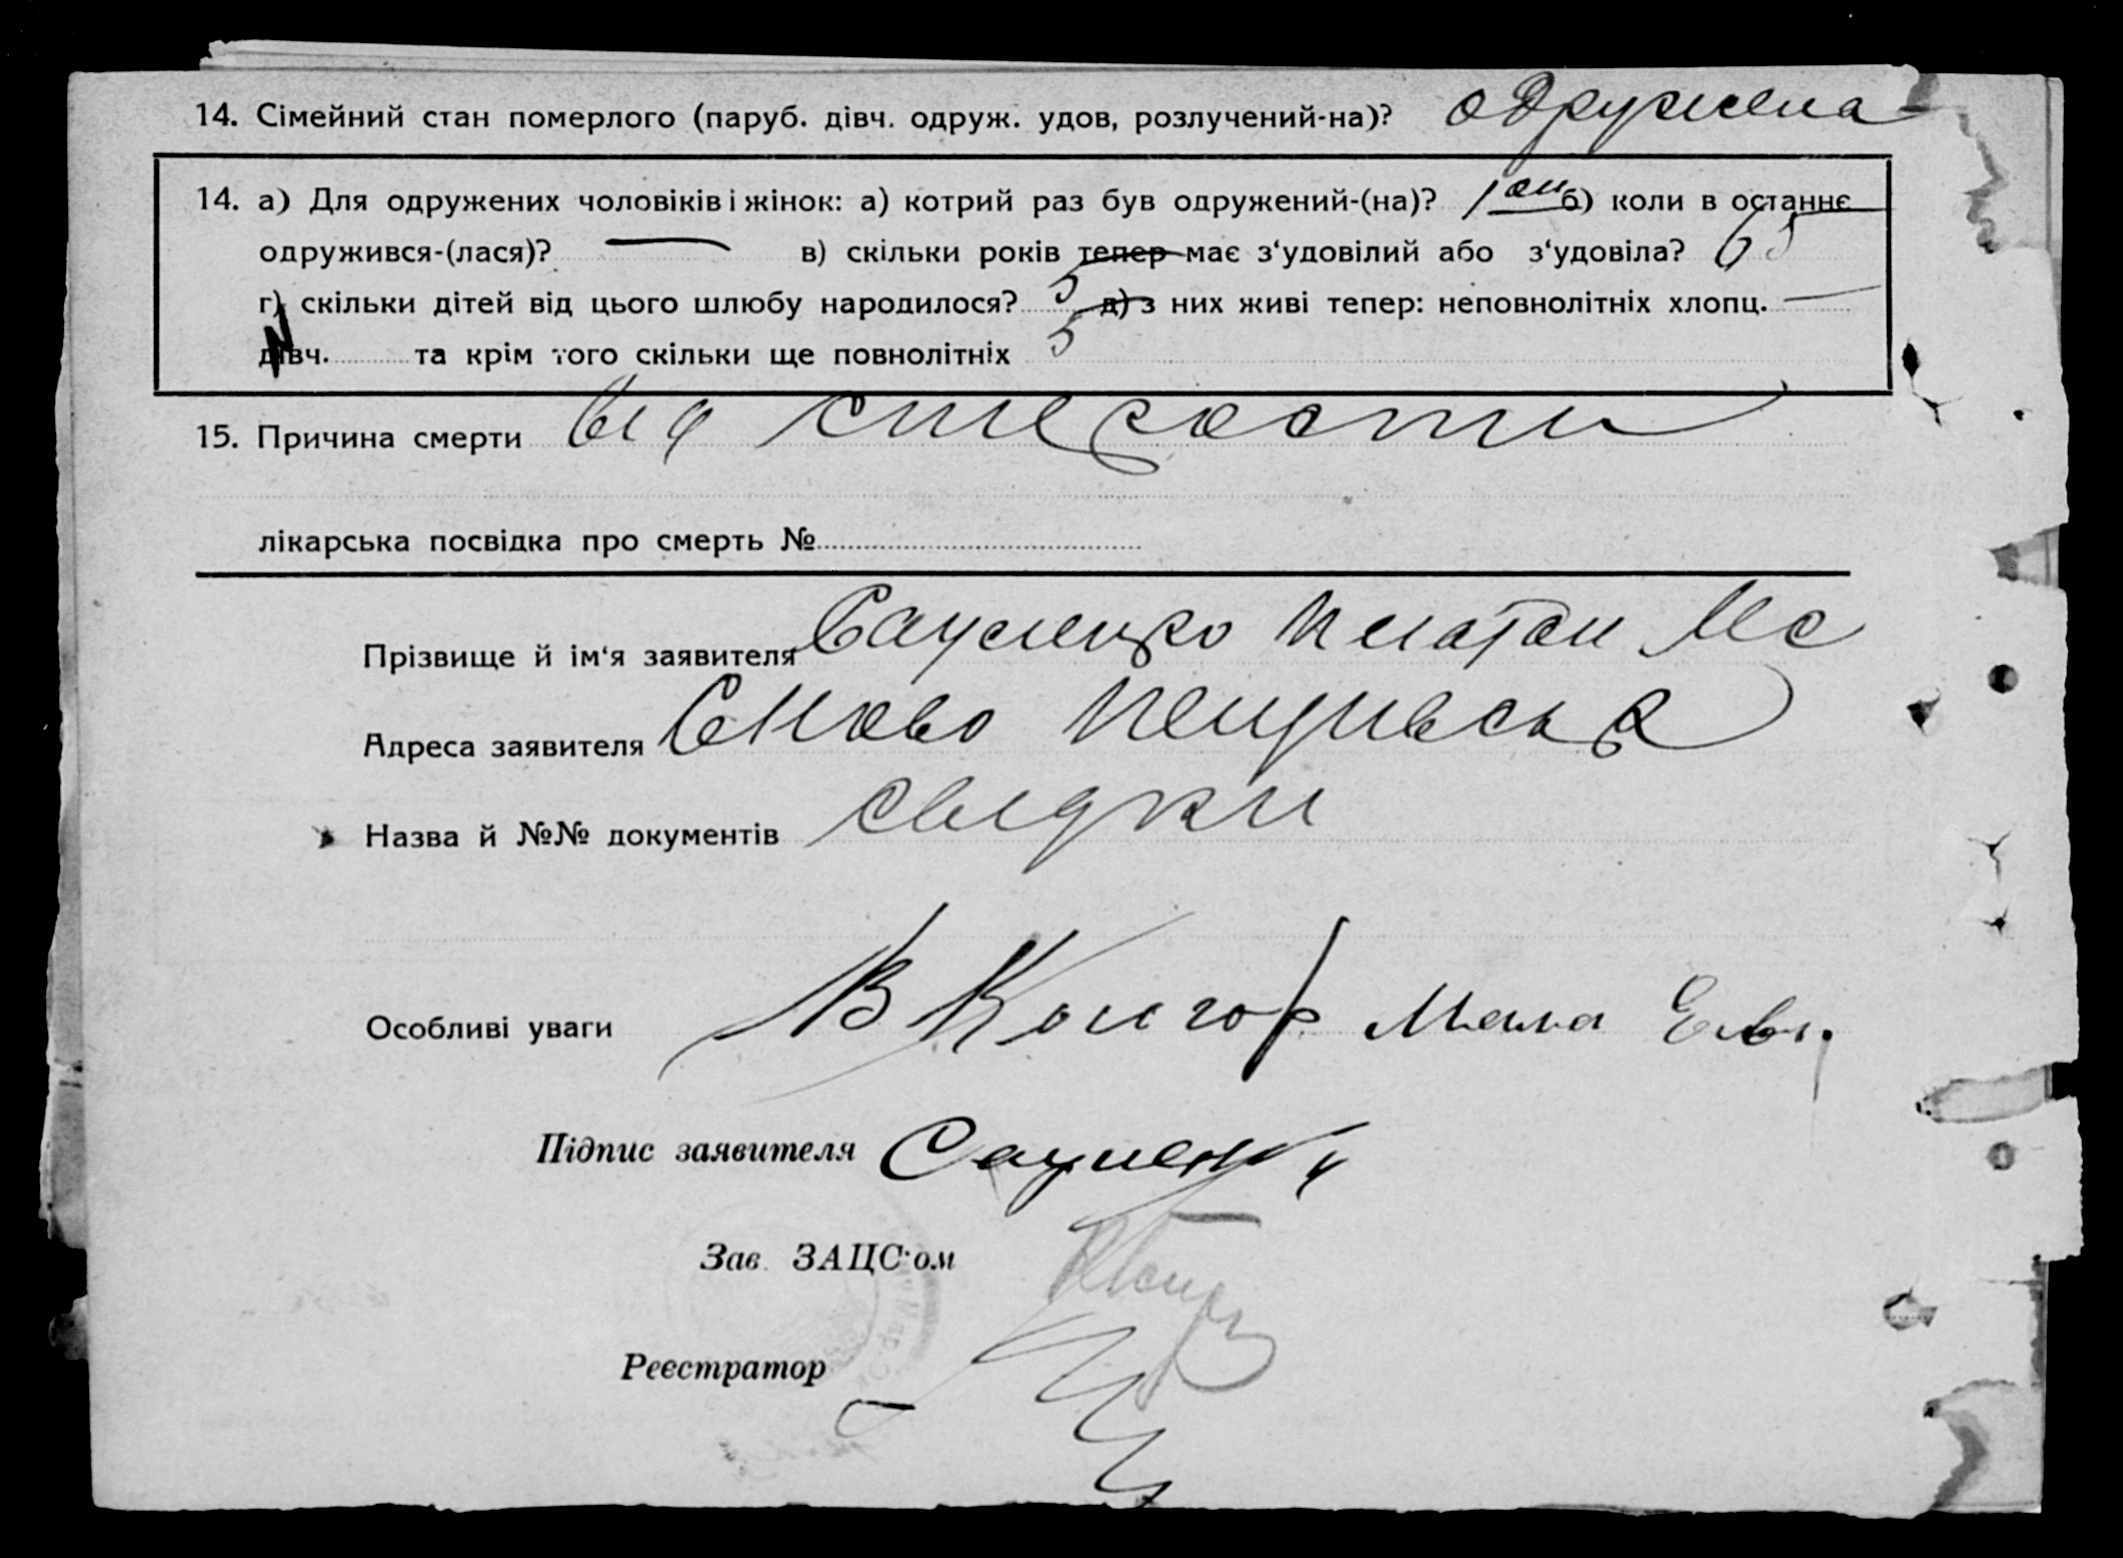 14. Сімейний стан померлого (паруб. дівч. одруж. удов, розлучений-на)? одружена
14. а) Для одружених чоловіків і жінок: а) котрий раз був одружений-(на)? 1 б) коли в останнє
одружився-(лася)? — в) скільки років тепер має з‘удовілий або з‘удовіла? 65
г) скільки дітей від цього шлюбу народилося? 5 д) з них живі тепер: неповнолітніх хлопц. —
дівч. та крім того скільки ще повнолітніх 5
15. Причина смерти від старости
лікарська посвідка про смерть №
Прізвище й ім‘я заявителя Сауленко Платон
Адреса заявителя
Назва й №№ документів свидки
Особливі уваги
Підпис заявителя Сауленко
Зав. ЗАЦС‘ом
Реєстратор